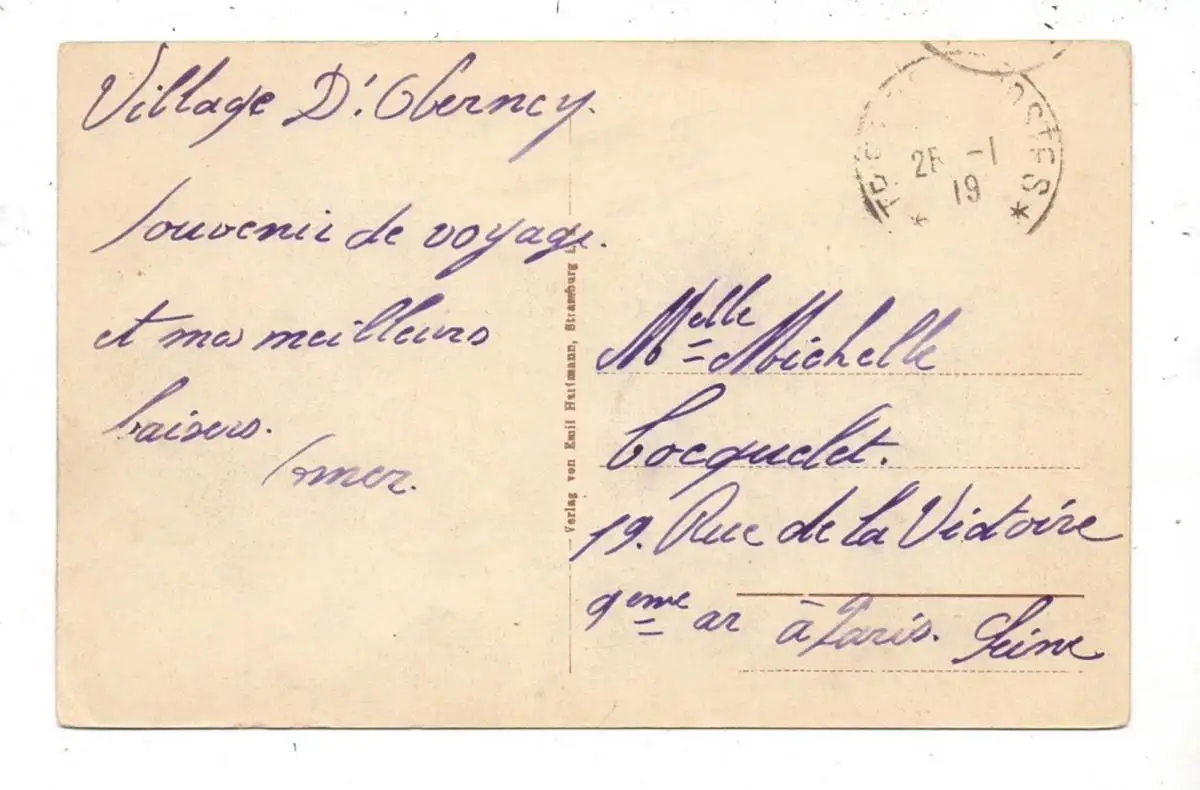 Village D'Oberney.
Souvenir de voyage.
et mes meilleurs
baisers.
Verlag von Emil Hartmann, Strassburg
POSTES
* *
-1
19
Melle Michelle
Cocquelet.
19. Rue de la Victoire
9eme ar à Paris. Seine